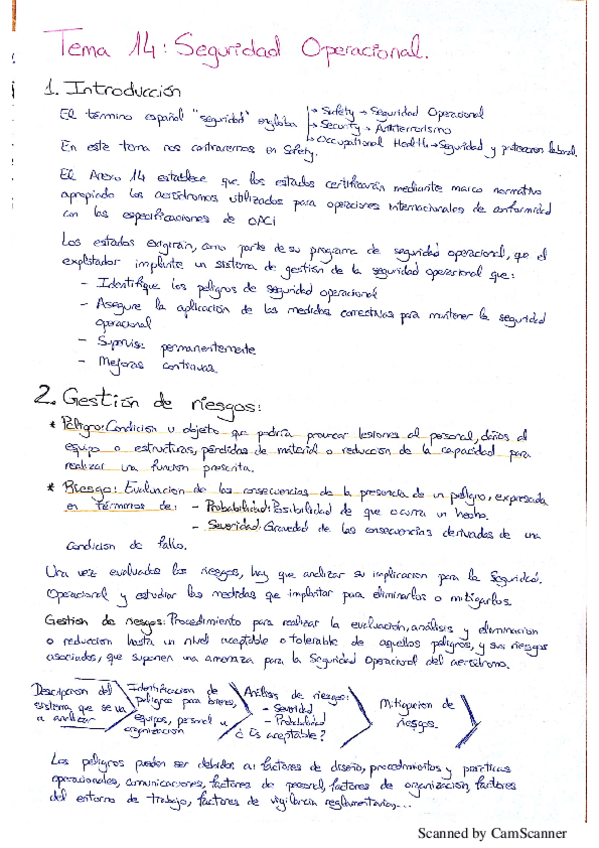 Tema 14: Seguridad Operacional.
1. Introducción
El término español "seguridad" engloba
→ Safety → Seguridad Operacional
→ Security → Antiterrorismo
→ Occupational Health → Seguridad y proteccion laboral.
En este tema nos centraremos en Safety.
El Anexo 14 establece que los estados certificarán mediante marco normativo
apropiado los aeródromos utilizados para operaciones internacionales de conformidad
con las especificaciones de OACI
Los estados exigirán, como parte de su programa de seguridad operacional, que el
explotador implante un sistema de gestión de la seguridad operacional que:
- Identifique los peligros de seguridad operacional
- Asegure la aplicación de las medidas correctivas para mantener la seguridad
operacional
- permanentemente
- Mejoras continuas.
2. Gestión de riesgos:
* Peligro: Condición u objeto que podría provocar lesiones al personal, daños al
equipo o estructuras, pérdidas de material o reducción de la capacidad para
realizar una función prescrita.
* Riesgo: Evaluación de las consecuencias de la presencia de un peligro, expresada
en términos de: - Probabilidad: Posibilidad de que ocurra un hecho.
- Severidad: Gravedad de las consecuencias derivadas de una
condición de fallo.
Una vez evaluados los riesgos, hay que analizar su implicación para la Seguridad.
Operacional y estudiar las medidas que implantar para eliminarlos o mitigarlos.
Gestion de riesgos: Procedimiento para realizar la evaluación, análisis y eliminación
o reducción hasta un nivel aceptable o tolerable de aquellos peligros, y sus riesgos
asociados, que suponen una amenaza para la Seguridad Operacional del aeródromo.
Descripción del
sistema que se va
a analizar
Identificación de
peligros para bienes,
equipos, personal u
organización
Análisis de riesgos:
- Severidad
- Probabilidad
¿Es aceptable?
Mitigación de
riesgos.
Los peligros pueden ser debidos a: factores de diseño, procedimientos y prácticas
operacionales, comunicaciones, factores de personal, factores de organización, factores
del entorno de trabajo, factores de vigilancia reglamentaria,...
Scanned by CamScanner